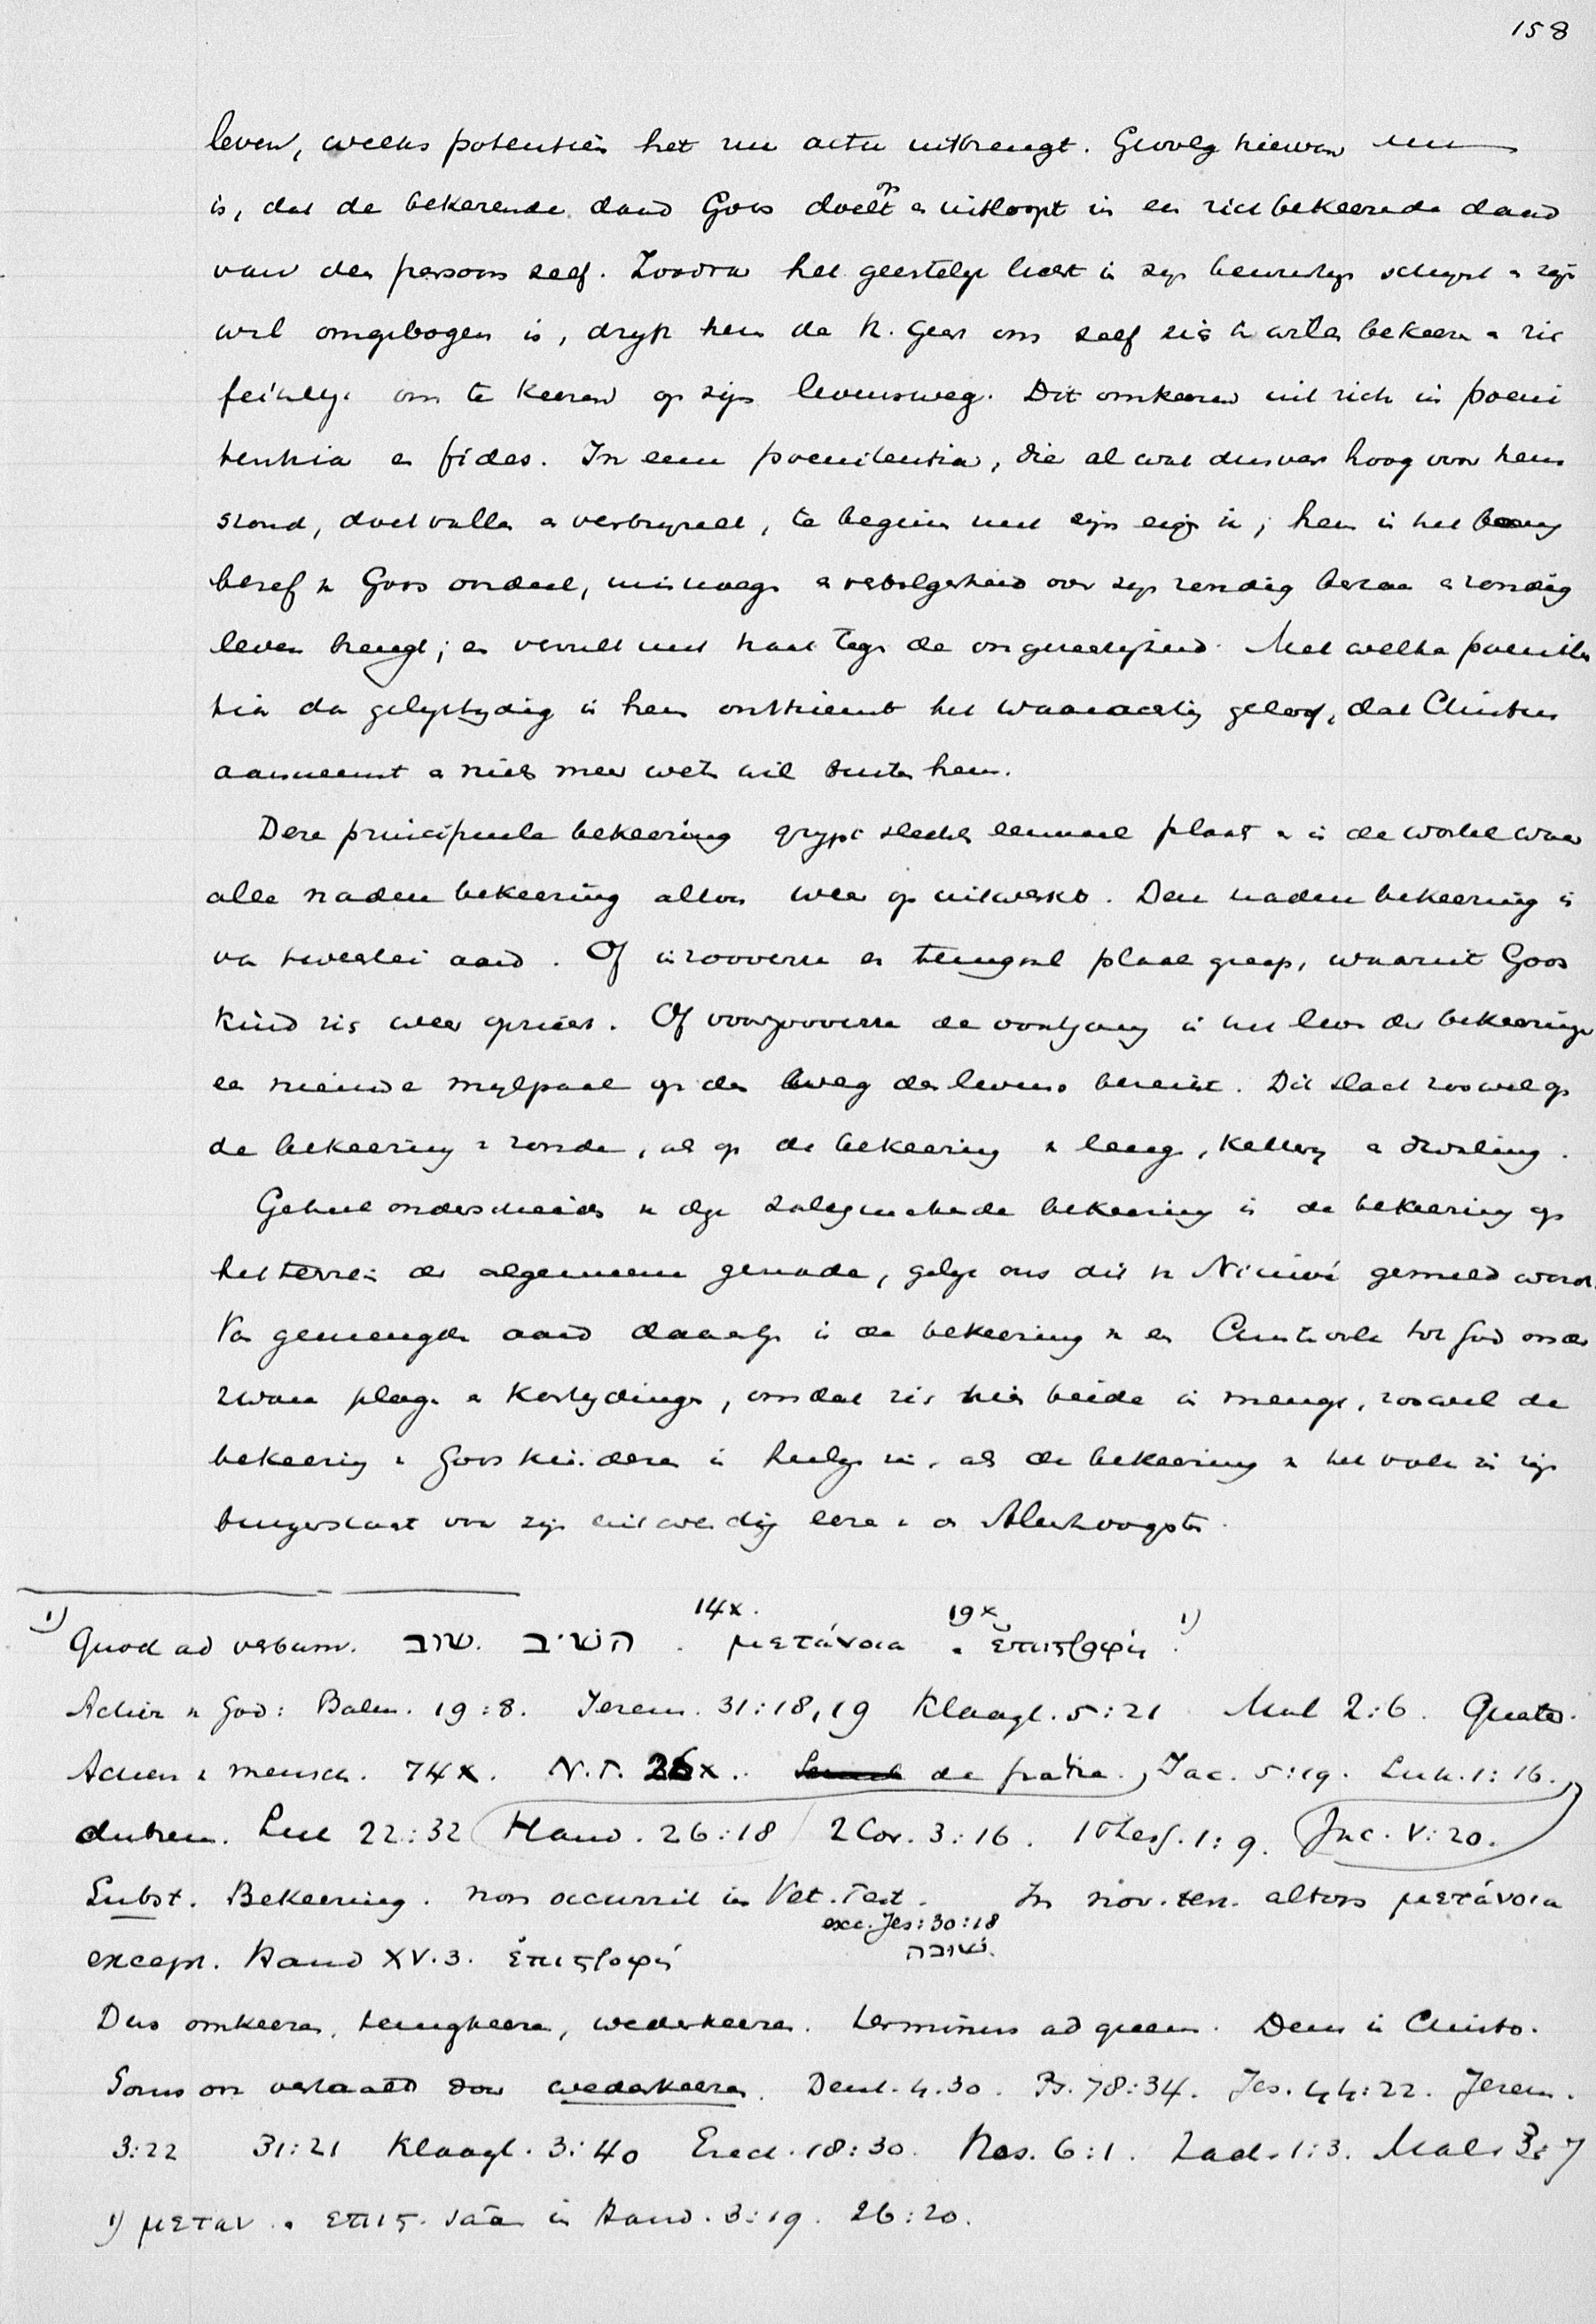 158
leven, welks potentiën het nu actu uitbrengt. Gevolg hiervan nu
is, dat de bekeerende daad Gods doelt op en uitloopt in een zich bekeerende daad
van den persoon zelf. Zoodra het geestelijk licht in zijn bewustzijn schijnt en zijn
wil omgebogen is, drijft hem de H. Geest om zelf zich te willen bekeeren en zich
feitelijk om te keeren op zijn levensweg. Dit omkeeren uit zich in poeni
tentia en fides. In eene poenitentia, die al wat dusver hoog voor hem
stond, doet vallen en verbrijzelt, te beginnen met zijn eigen ik; hem in het bang
besef van Gods oordeel, misnoegen en verbolgenheid over zijn zondig bestaan en zondig
leven brengt; en vervult met haat tegen de ongerechtigheid. Met welke poeniten
tia dan gelijktijdig in hem ontkiemt het waarachtig geloof, dat Christus
aanneemt en niets meer weten wil buiten hem.
Deze principieele bekeering grijpt slechts eenmaal plaats en is de wortel waar
alle nadere bekeering altoos weer op uitwerkt. Deze nadere bekeering is
van tweeërlei aard. Of inzooverre er terugval plaats greep, waaruit Gods
kind zich weer opricht. Of voorzooverre de voortgang in het leven der bekeering
een nieuwe mijlpaal op den weg des levens bereikt. Dit slaat zoowel op
de bekeering van zonde, als op de bekeering van leugen, ketterij en dwaling.
Geheel onderscheiden van deze zaligmakende bekeering is de bekeering op
het terrein der algemeene genade, gelijk ons die van Ninivé gemeld wordt.
Van gemengden aard daarentegen is de bekeering van een Christenvolk tot God onder
zware plagen en kastijdingen, omdat zich hier beide in mengt, zoowel de
bekeering van Gods kinderen in heiligen zin, als de bekeering van het volk in zijn
burgerstaat voor zijn uitwendig eeren van den Allerhoogste.
1) Quod ad verbum. שוב. השיב . 14x. μετάνοια en 19x ἐπιστροφή 1)
Actief van God: Psalm. 19:8. Jerem. 31:18,19 Klaagl. 5:21 Mal 2:6. Quater.
Actief van mensch. 74x. N.T. 26x. de fratre, Jac. 5:19. Luk. 1:16.
Luc 22:32 Hand. 26:18 2 Cor. 3:16. 1 Thess. 1:9. Jac. V:20.
Subst. Bekeering. non occurrit in Vet. Test. In nov. test. altoos μετάνοια
exc. Jes: 30:18
שובה.
except. Hand XV.3. ἐπιστροφή
Dus omkeeren, terugkeeren, wederkeeren. terminus ad quem. Deus in Christo.
Soms ook vertaald door wederkeeren. Deut. 4.30. Ps. 78:34. Jes. 44:22. Jerem.
3:22 31:21 Klaagl. 3:40 Ezech. 18:30. Hos. 6:1. Zach. 1:3. Mal. 3:7
1) μεταν. en επιστ. saâm in Hand. 3:19. 26:20.